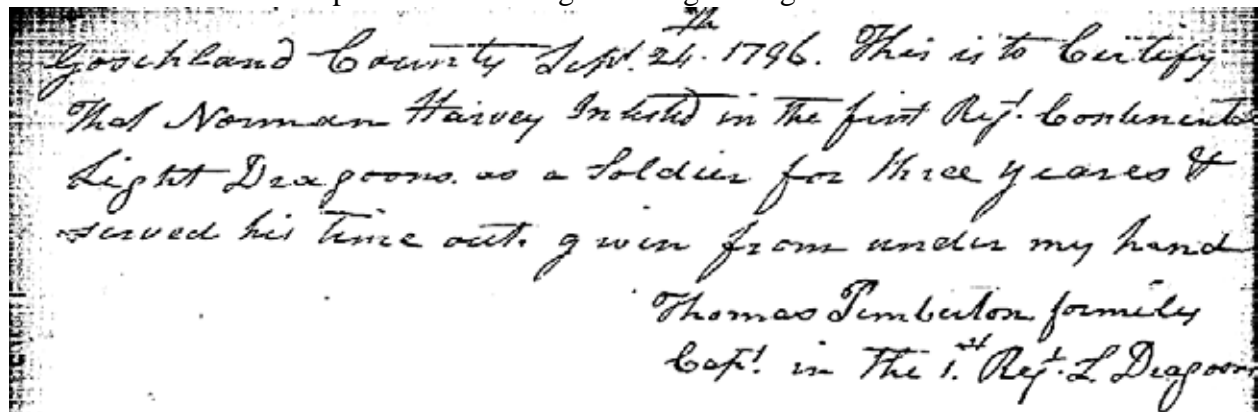 Goochland County Sept. 24th. 1796. This is to Certify
That Norman Harvey Inlisted in the first Regt. Continental
Light Dragoons. as a Soldier for three yeares &
served his time out. given from under my hand
Thomas Pemberton formily
Capt. in The 1.st Regt. L Dragoons